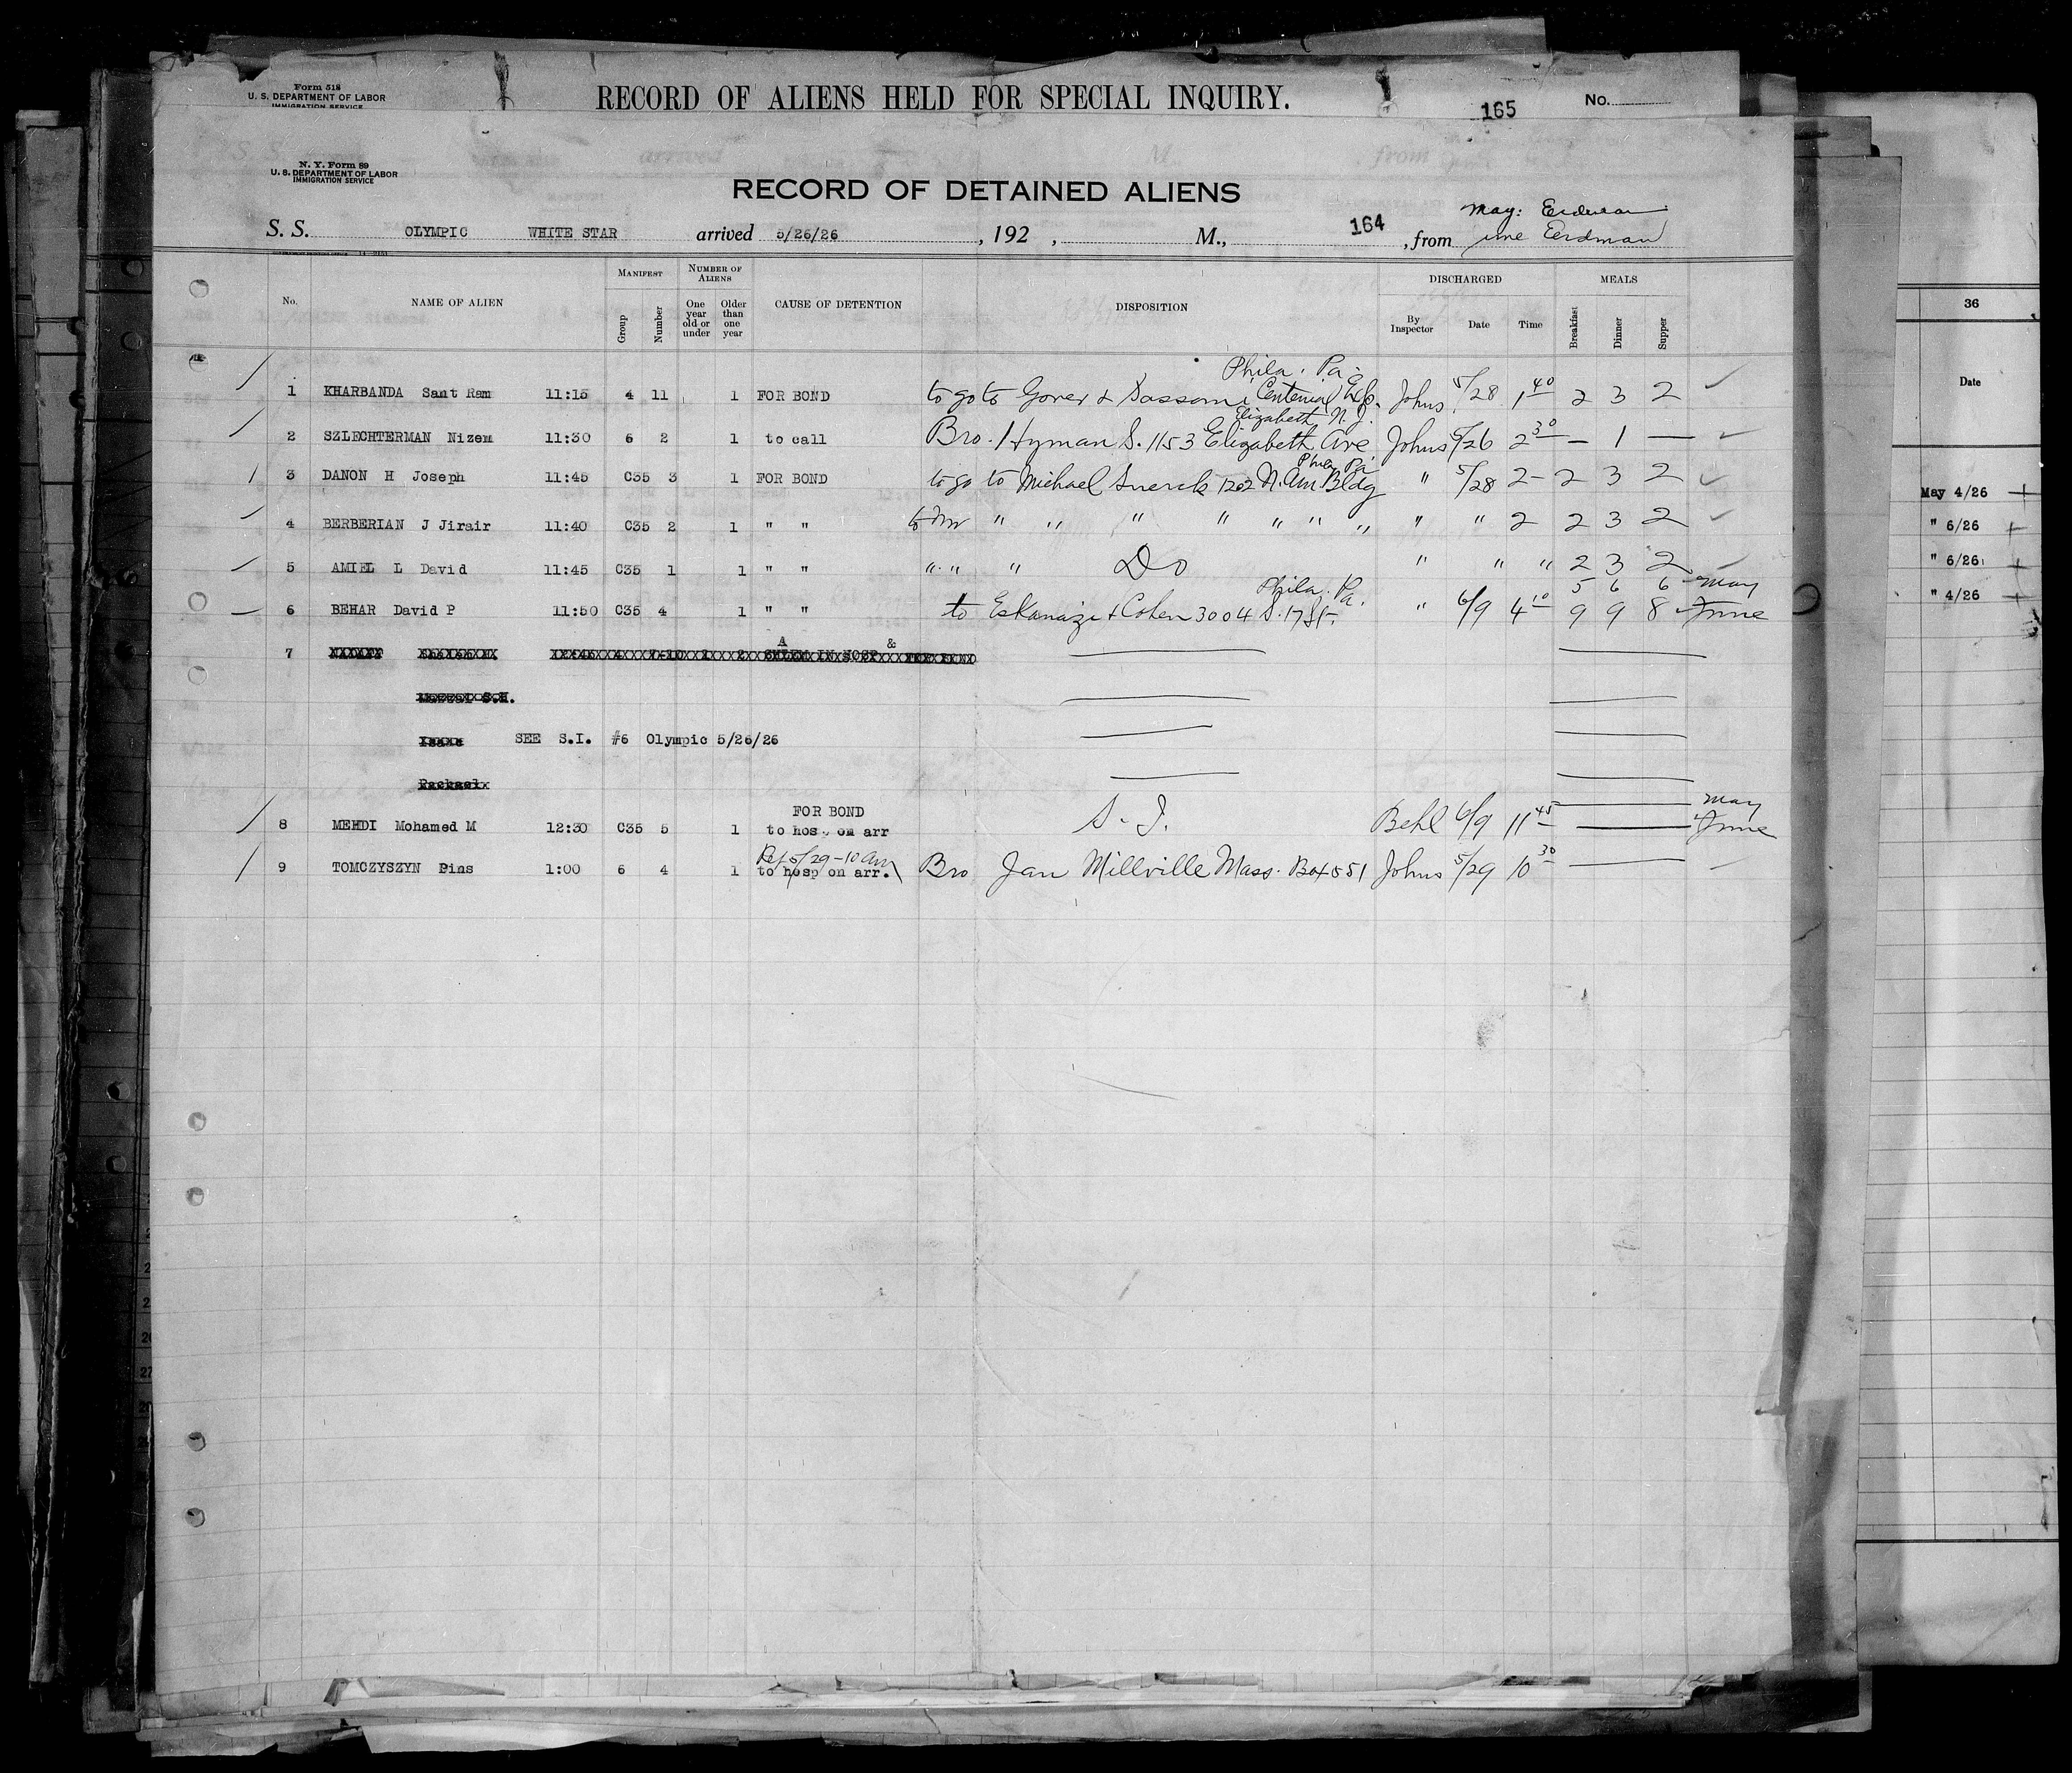 Form 518
U. S. DEPARTMENT OF LABOR
IMMIGRATION SERVICE
RECORD OF ALIENS HELD FOR SPECIAL INQUIRY.
165
No.
N. Y. Form 89
U. S. DEPARTMENT OF LABOR
IMMIGRATION SERVICE
RECORD OF DETAINED ALIENS
May: Erdman
S. S. OLYMPIC WHITE STAR arrived 5/26/26, 192 , M., 164, from June Erdman
No. NAME OF ALIEN MANIFEST Group Number NUMBER OF ALIENS One year old or under Older than one year CAUSE OF DETENTION DISPOSITION DISCHARGED By Inspector Date Time MEALS Breakfast Dinner Supper
Phila. Pa.
1 KHARBANDA Sant Ram 11:15 4 11 1 FOR BOND to go to Gover & Sassoni Centenial Exp. Johns 5/28 1 40 2 3 2
Elizabeth N.J.
2 SZLECHTERMAN Nizem 11:30 6 2 1 to call Bro. Hyman S. 1153 Elizabeth Ave. Johns 5/26 2 30 — 1 —
Phila Pa
3 DANON H Joseph 11:45 C35 3 1 FOR BOND to go to Michael Snerck 1202 N. Am. Bldg " 5/28 2- 2 3 2
4 BERBERIAN J Jirair 11:40 C35 2 1 " " to Mr " " " " " " " " " 2 2 3 2
5 AMIEL L David 11:45 C35 1 1 " " " " " Do " " " 2 3 2
Phila. Pa. 5 6 6 May
6 BEHAR David P 11:50 C35 4 1 " " to Eskanazi & Cohen 3004 S. 17 St. " 6/9 4 10 9 9 8 June
7
S.H.
SEE S.I. #6 Olympic 5/26/26
FOR BOND
May
8 MEHDI Mohamed M 12:30 C35 5 1 to hosp on arr S. I. Behl 6/9 11 45 June
Ret 5/29-10 Am
9 TOMCZYSZYN Pins 1:00 6 4 1 to hosp on arr. Bro Jan Millville Mass. Box 551 Johns 5/29 10 30
36
Date
May 4/26
" 6/26
" 6/26
" 4/26